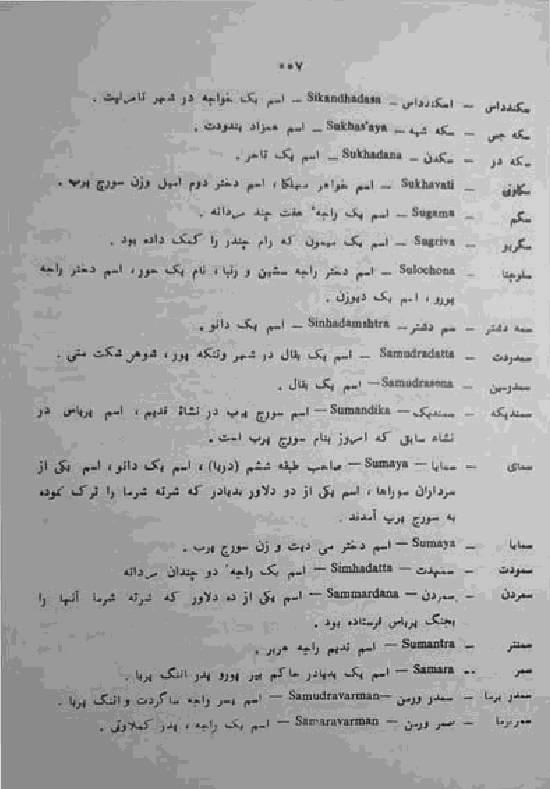 ۵۵۷
سکندداس — اسکندداس — Sikandhadasa — اسم یک خواجه در شهر تامرلیت .
سکه جس — سکه شیه — Sukhas'aya — اسم همزاد بندودت .
سکه در — سکدن — Sukhadana — اسم یک تاجر .
سکاوتی — Sukhavati — اسم خواهر سهلکا ، اسم دختر دوم اسیل وزن سورج پرب .
سگم — Sugama — اسم یک راجه هفت چند مردانه .
سگریو — Sugriva — اسم یک میمون که رام چندر را کمک داده بود .
سلوچنا — Sulochona — اسم دختر راجه سشین و رنبا ، نام یک حور ، اسم دختر راجه
پورو ، اسم یک دیوزن .
سمه دشتر — سم دشتر — Sinhadamshtra — اسم یک دانو .
سمدردت — Samudradatta — اسم یک بقال در شهر وتنکه پور ، شوهر شکت متی .
سمدرسین — Samudrasena — اسم یک بقال .
سمندیکه — سمندیک — Sumandika — اسم سورج پرب در نشاة قدیم ، اسم پرباس در
نشاه سابق که امروز بنام سورج پرب است .
سمای — سمایا — Sumaya — صاحب طبقه ششم (دریا) ، اسم یک دانو ، اسم یکی از
سرداران سوراها ، اسم یکی از دو دلاور بدیادر که شرته شرما را ترک کوده
به سورج پرب آمدند .
سمایا — Sumaya — اسم دختر می دیت و زن سورج پرب .
سمودت — سمهدت — Simhadatta — اسم یک راجه دو چندان مردانه
سمردن — سمردن — Sammardana — اسم یکی از ده دلاور که شرته شرما آنها را
بجنگ پرباس فرستاده بود .
سمنتر — Sumantra — اسم ندیم راجه هربر .
سمر — Samara — اسم یک بدیادر حاکم بیر پورو پدر اننگ پربا .
سمدر برما — سمدر وورمن — Samudravarman — اسم پسر راجه ساگردت و اننگ پربا .
سمربرما — سمر وورمن — Samaravarman — اسم یک راجه ، پدر کملاوتی .